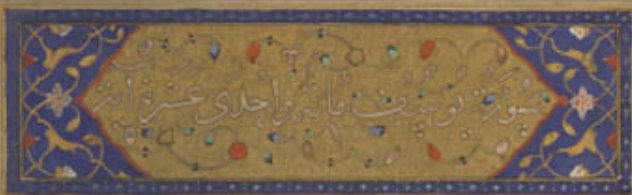 سورة يوسف مائة واحدى عشرة اية